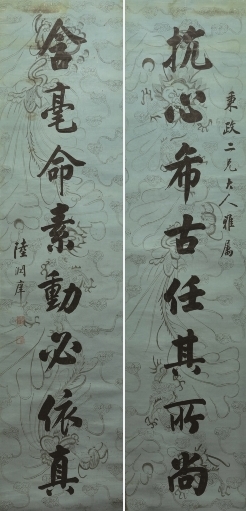 秉政二兄大人雅屬
抗心希古任其所尚
含毫命素動必依真
陸潤庠